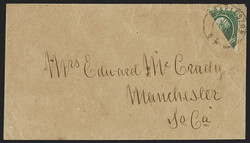 Mrs Edward McCrady
Manchester
So Ca